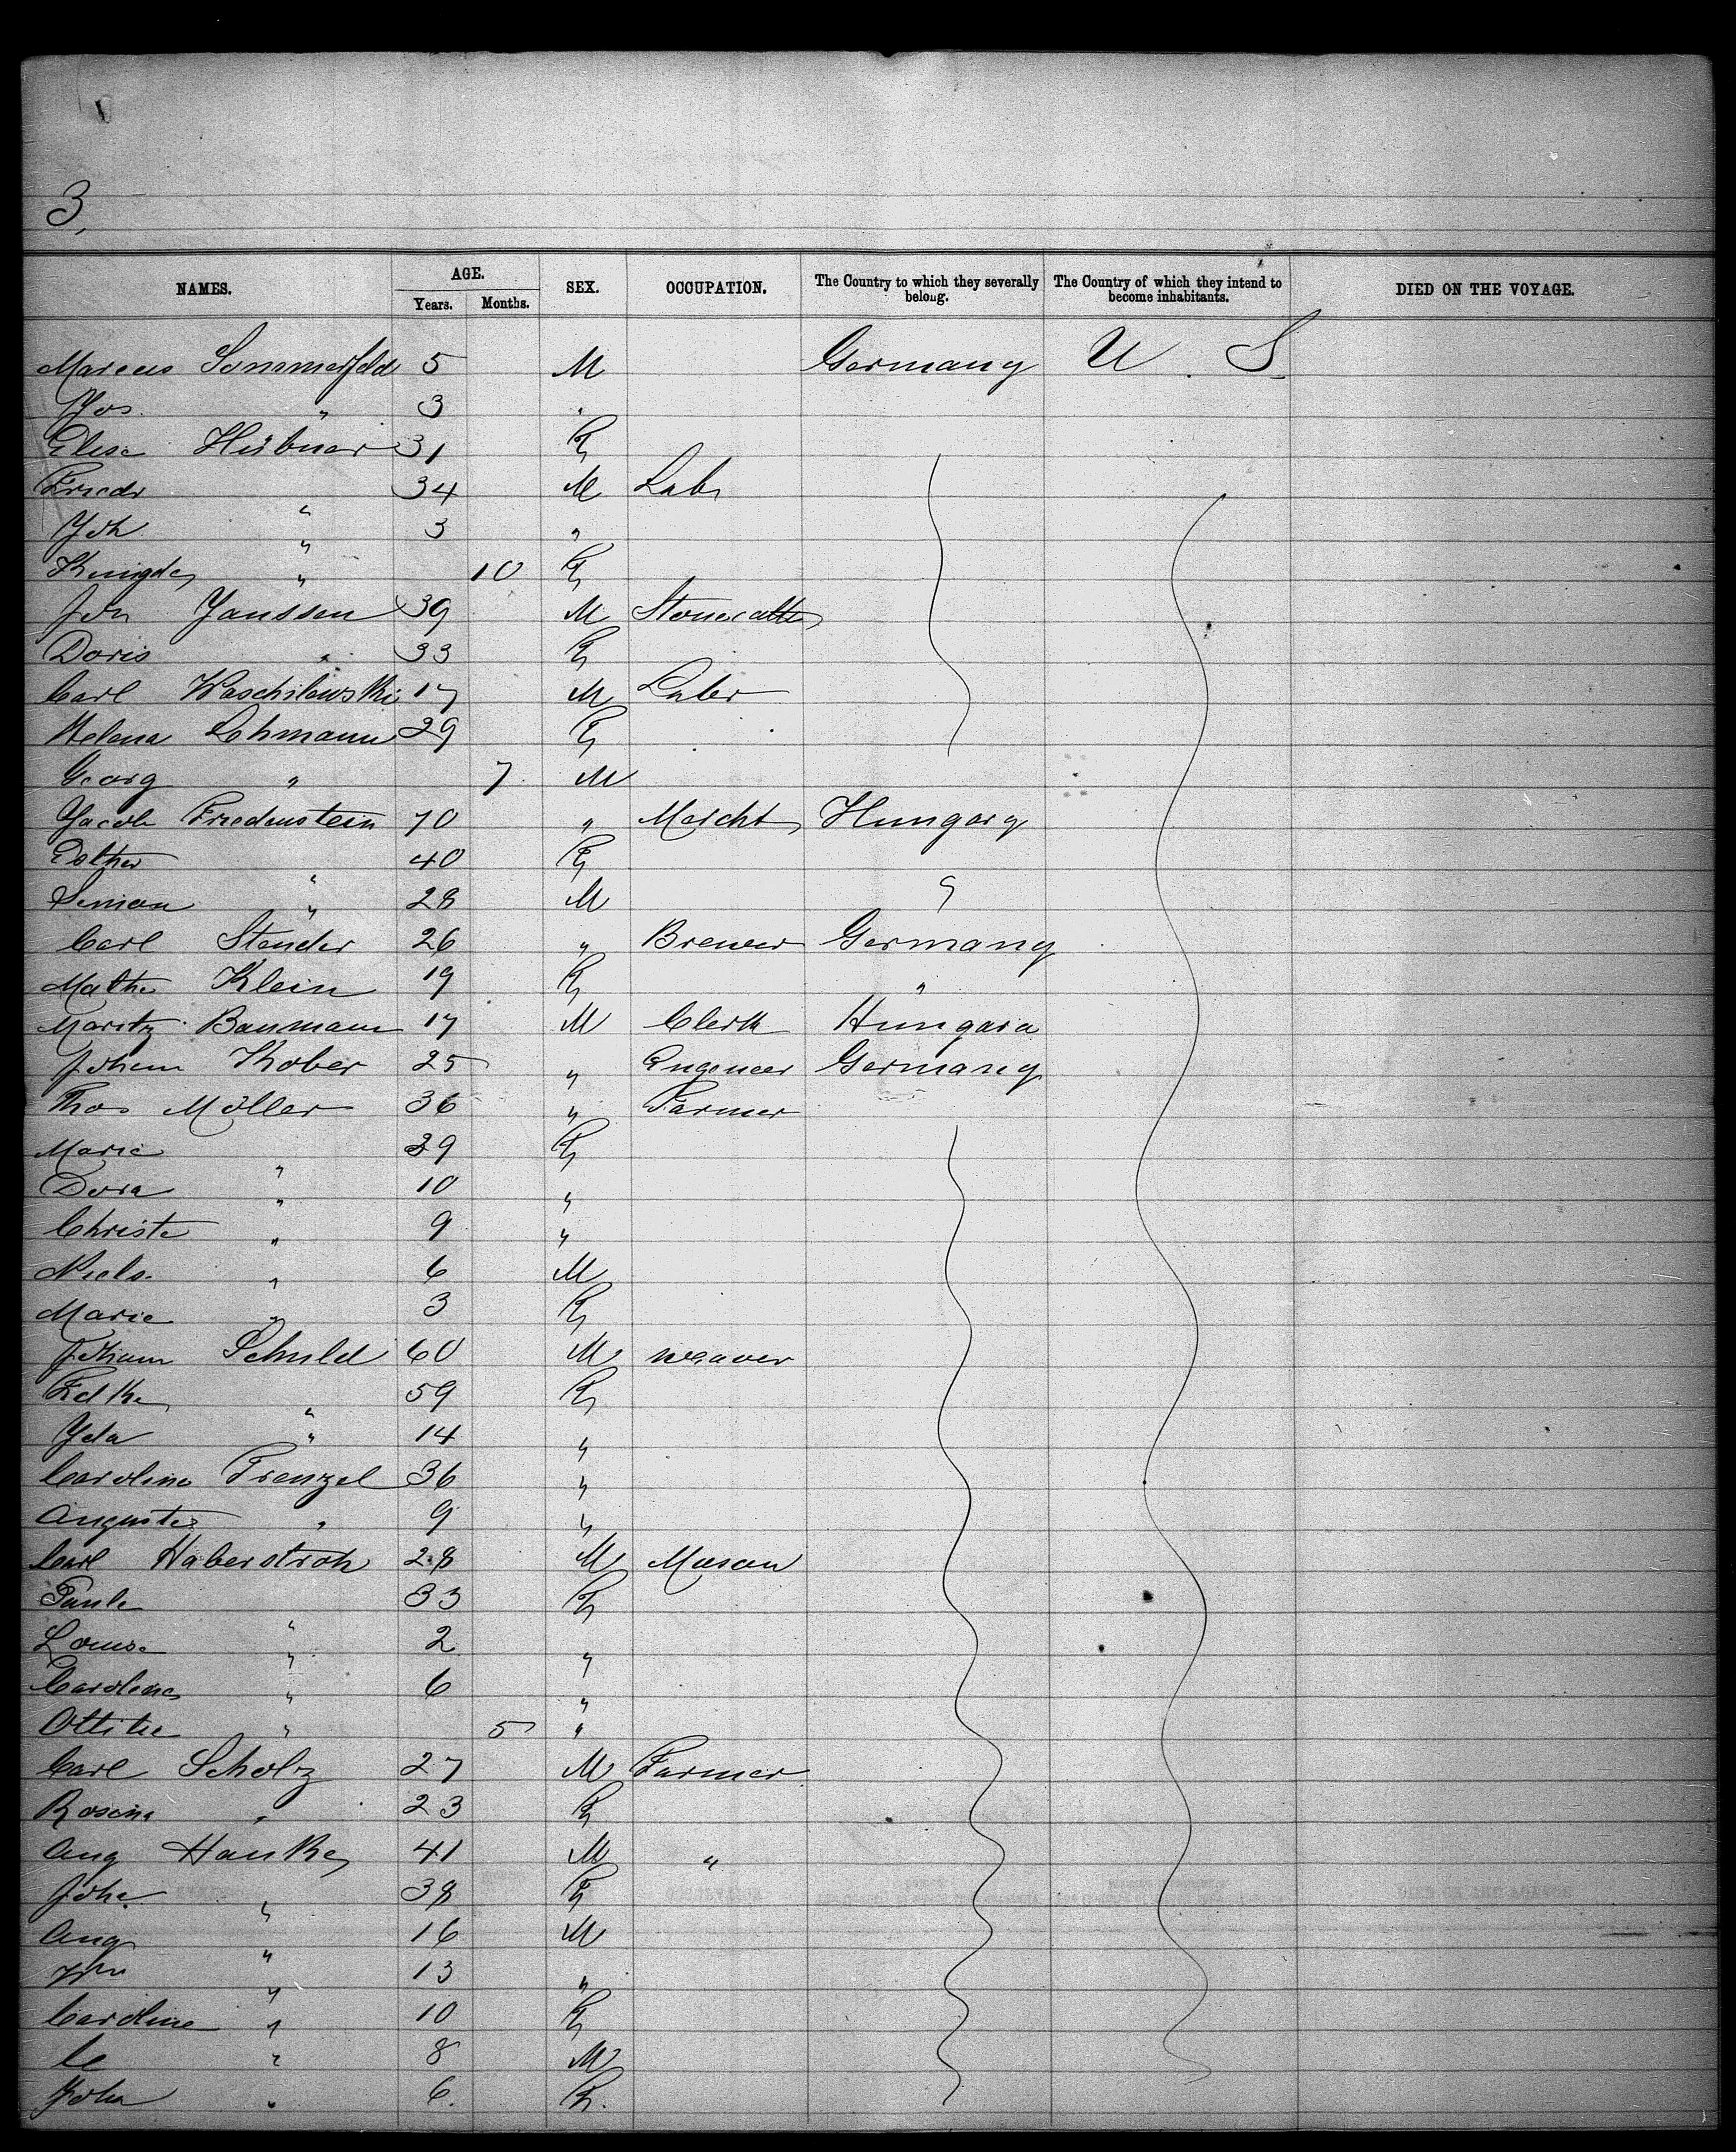 3.
NAMES. AGE. Years. Months. SEX. OCCUPATION. The Country to which they severally belong. The Country of which they intend to become inhabitants. DIED ON THE VOYAGE.
Marcus Sommerfeld 5 M Germany U. S.
Jos. " 3 "
Elise Hübner 31 F
Friedr " 34 M Labr
Joh " 3 "
" 10 F
Joh Janssen 39 M Stonecutter
Doris " 33 F
Carl Waschilewski 17 M Labor
Helena Lehmann 29 F
Georg " 7 M
Jacob Friedenstein 70 " Mercht Hungary
Esther " 40 F
Simon " 28 M "
Carl Stender 26 " Brewer Germany
Mathe Klein 19 F "
Moritz Baumann 17 M Clerk Hungara
Johann Kober 25 " Engeneer Germany
Thos Möller 36 " Farmer
Marie " 29 F
Dora " 10 "
Christe " 9 "
Niels " 6 M
Marie " 3 F
Johann Schuld 60 M weaver
" 59 F
Ida " 14 "
Caroline Frenzel 36 "
Auguste " 9 "
Carl Haberstroh 28 M Mason
Paule " 33 F
Louise " 2 "
Caroline " 6 "
Ottilie " 5 "
Carl Scholz 27 M Farmer
Rosina " 23 F
Aug Hanke 41 M "
Johe " 38 F
Aug " 16 M
Wm " 13 "
Caroline " 10 F
" 8 M
Joha " 6. F.